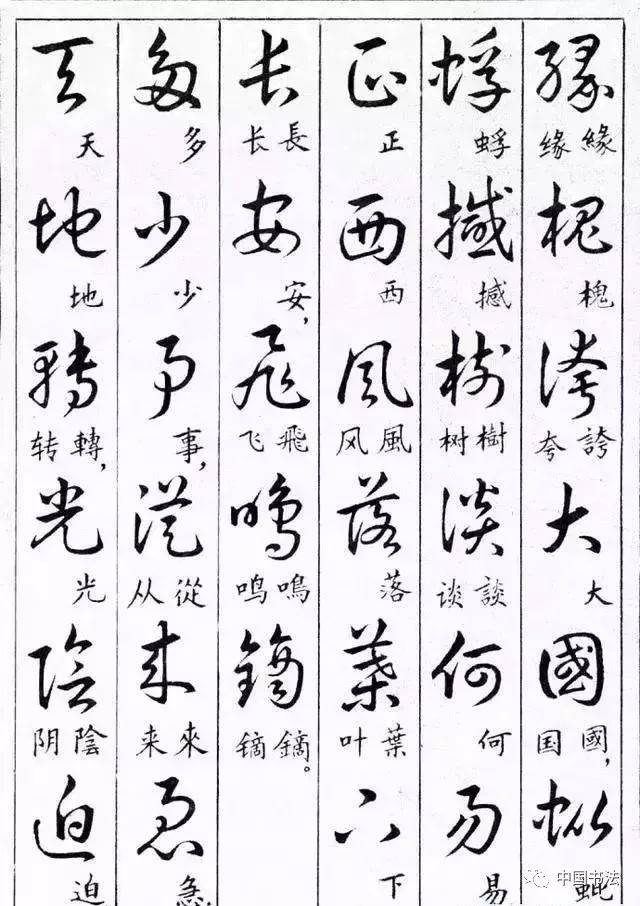 緣 緣缘 槐 槐 誇 誇夸 大 大 國 國,国 蚍 蚍
蜉 蜉 撼 撼 樹 樹树 談 談谈 何 何 易 易
正 正 西 西 風 風风 落 落 葉 葉叶 下 下
长 長长 安 安, 飛 飛飞 鳴 鳴鸣 鏑 鏑。镝
多 多 少 少 事 事, 從 從从 来 來来 急 急
天 天 地 地 轉 轉,转 光 光 陰 陰阴 迫 迫
中国书法